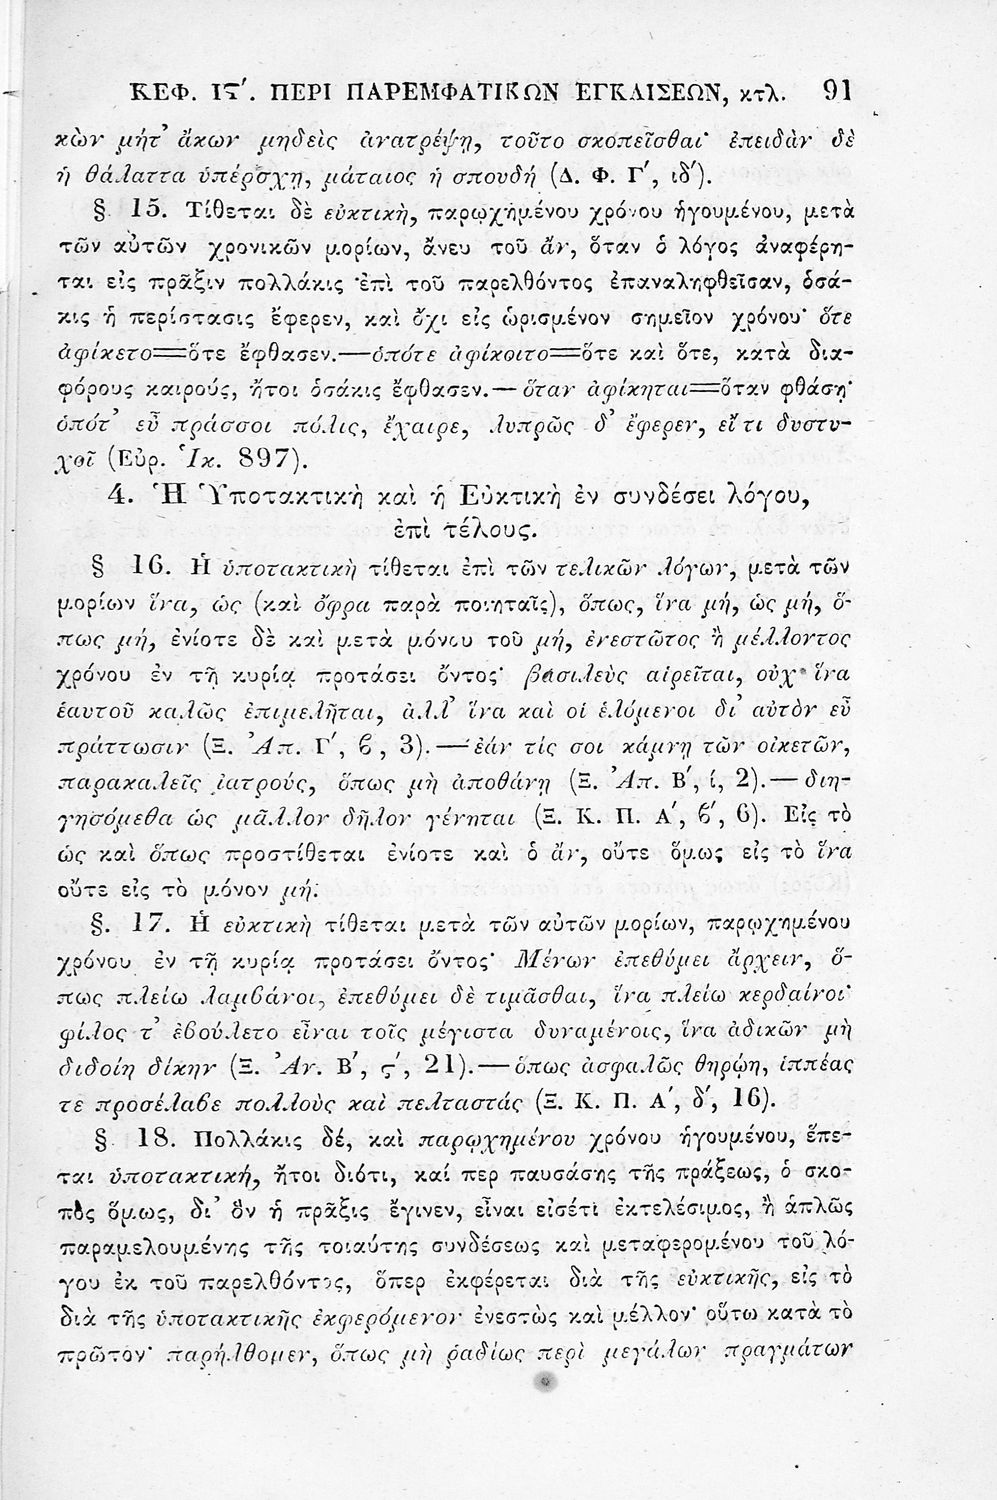 ΚΕΦ. ΙϚʹ. ΠΕΡΙ ΠΑΡΕΜΦΑΤΙΚΩΝ ἘΓΚΛΙΣΕΩΝ, κτλ. 91
κὼν μήτ᾽ ἄκων μηδεὶς ἀνατρέψῃ, τοῦτο σκοπεῖσθαι· ἐπειδὰν δὲ
ἡ θάλαττα ὑπέρσχῃ, μάταιος ἡ σπουδή (Δ. Φ. Γʹ, ιδʹ).
§ 15. Τίθεται δὲ εὐκτικὴ, παρῳχημένου χρόνου ἡγουμένου, μετὰ
τῶν αὐτῶν χρονικῶν μορίων, ἄνευ τοῦ ἄν, ὅταν ὁ λόγος ἀναφέρη-
ται εἰς πρᾶξιν πολλάκις ἐπὶ τοῦ παρελθόντος ἐπαναληφθεῖσαν, ὁσά-
κις ἡ περίστασις ἔφερεν, καὶ ὄχι εἰς ὡρισμένον σημεῖον χρόνου· ὅτε
ἀφίκετο=ὅτε ἔφθασεν.—ὁπότε ἀφίκοιτο=ὅτε καὶ ὅτε, κατὰ δια-
φόρους καιρούς, ἤτοι ὁσάκις ἔφθασεν.—ὅταν ἀφίκηται=ὅταν φθάσῃ·
ὁπότ᾽ εὖ πράσσοι πόλις, ἔχαιρε, λυπρῶς δ᾽ ἔφερεν, εἴ τι δυστυ-
χοῖ (Εὐρ. Ἱκ. 897).
4. Ἡ Ὑποτακτικὴ καὶ ἡ Εὐκτικὴ ἐν συνδέσει λόγου,
ἐπὶ τέλους.
§ 16. Ἡ ὑποτακτικὴ τίθεται ἐπὶ τῶν τελικῶν λόγων, μετὰ τῶν
μορίων ἵνα, ὡς (καὶ ὄφρα παρὰ ποιηταῖς), ὅπως, ἵνα μή, ὡς μή, ὅ-
πως μή, ἐνίοτε δὲ καὶ μετὰ μόνου τοῦ μή, ἐνεστῶτος ἢ μέλλοντος
χρόνου ἐν τῇ κυρίᾳ προτάσει ὄντος· βασιλεὺς αἱρεῖται, οὐχ ἵνα
ἑαυτοῦ καλῶς ἐπιμελῆται, ἀλλ᾽ ἵνα καὶ οἱ ἑλόμενοι δι᾽ αὐτὸν εὖ
πράττωσιν (Ξ. Ἀπ. Γʹ, ϐ, 3).—ἐάν τίς σοι κάμνῃ τῶν οἰκετῶν,
παρακαλεῖς ἰατρούς, ὅπως μὴ ἀποθάνῃ (Ξ. Ἀπ. Βʹ, ί, 2).—διη-
γησόμεθα ὡς μᾶλλον δῆλον γένηται (Ξ. Κ. Π. Αʹ, ϐʹ, 6). Εἰς τὸ
ὡς καὶ ὅπως προστίθεται ἐνίοτε καὶ ὁ ἄν, οὔτε ὅμως εἰς τὸ ἵνα
οὔτε εἰς τὸ μόνον μή.
§. 17. Ἡ εὐκτικὴ τίθεται μετὰ τῶν αὐτῶν μορίων, παρῳχημένου
χρόνου ἐν τῇ κυρίᾳ προτάσει ὄντος· Μένων ἐπεθύμει ἄρχειν, ὅ-
πως πλείω λαμϐάνοι, ἐπεθύμει δὲ τιμᾶσθαι, ἵνα πλείω κερδαίνοι·
φίλος τ᾽ ἐβούλετο εἶναι τοῖς μέγιστα δυναμένοις, ἵνα ἀδικῶν μὴ
διδοίη δίκην (Ξ. Ἀν. Βʹ, ϛʹ, 21).—ὅπως ἀσφαλῶς θηρῴη, ἱππέας
τε προσέλαϐε πολλοὺς καὶ πελταστάς (Ξ. Κ. Π. Αʹ, δʹ, 16).
§ 18. Πολλάκις δέ, καὶ παρῳχημένου χρόνου ἡγουμένου, ἕπε-
ται ὑποτακτική, ἤτοι διότι, καί περ παυσάσης τῆς πράξεως, ὁ σκο-
πὸς ὅμως, δι᾽ ὃν ἡ πρᾶξις ἔγινεν, εἶναι εἰσέτι ἐκτελέσιμος, ἢ ἁπλῶς
παραμελουμένης τῆς τοιαύτης συνδέσεως καὶ μεταφερομένου τοῦ λό-
γου ἐκ τοῦ παρελθόντος, ὅπερ ἐκφέρεται διὰ τῆς εὐκτικῆς, εἰς τὸ
διὰ τῆς ὑποτακτικῆς ἐκφερόμενον ἐνεστὼς καὶ μέλλον· οὕτω κατὰ τὸ
πρῶτον· παρήλθομεν, ὅπως μὴ ῥᾳδίως περὶ μεγάλων πραγμάτων